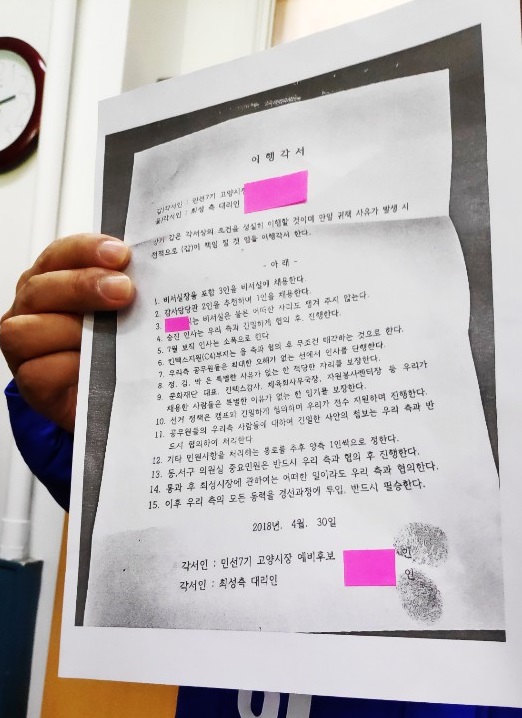 이 행 각 서
갑)각서인 : 민선7기 고양시장
을)각서인 : 최성 측 대리인
상기 갑은 각서상의 조건을 성실히 이행할 것이며 만일 귀책 사유가 발생 시
전적으로 (갑)이 책임 질 것 임을 이행각서 한다.
- 아 래 -
1. 비서실장을 포함 3인을 비서실에 채용한다.
2. 감사담당관 2인을 추천하며 1인을 채용한다.
3. 는 비서실은 물론 어떠한 자리도 챙겨 주지 않는다.
4. 승진 인사는 우리 측과 긴밀하게 협의 후, 진행한다.
5. 7월 보직 인사는 소폭으로 한다
6. 킨텍스지원(C4)부지는 을 측과 협의 후 무조건 매각하는 것으로 한다.
7. 우리측 공무원들은 최대한 오해가 없는 선에서 인사를 단행한다.
8. 정, 김, 박 은 특별한 사유가 없는 한 적당한 자리를 보장한다.
9. 문화재단 대표, 킨텍스감사, 체육회사무국장, 자원봉사센터장 등 우리가
채용한 사람들은 특별한 이유가 없는 한 임기를 보장한다.
10. 선거 정책은 캠프와 긴밀하게 협의하며 우리가 전수 지원하며 진행한다.
11. 공무원들의 우리측 사람들에 대하여 긴밀한 사안의 첩보는 우리 측과 반
드시 협의하여 처리한다.
12. 기타 민원사항을 처리하는 통로를 추후 양측 1인씩으로 정한다.
13. 동,서구 의원실 중요민원은 반드시 우리 측과 협의 후 진행한다.
14. 통과 후 최성시장에 관하여는 어떠한 일이라도 우리 측과 협의한다.
15. 이후 우리 측의 모든 동력을 경선과정에 투입, 반드시 필승한다.
2018년. 4월. 30일
각서인 : 민선7기 고양시장 예비후보 인
각서인 : 최성측 대리인 인